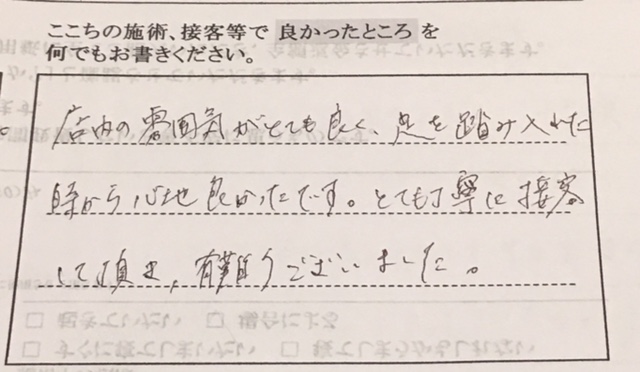 ここちの施術、接客等で 良かったところ を
何でもお書きください。
店内の雰囲気がとても良く、足を踏み入れた
時から心地良かったです。とても丁寧に接客
して頂き、有難うございました。